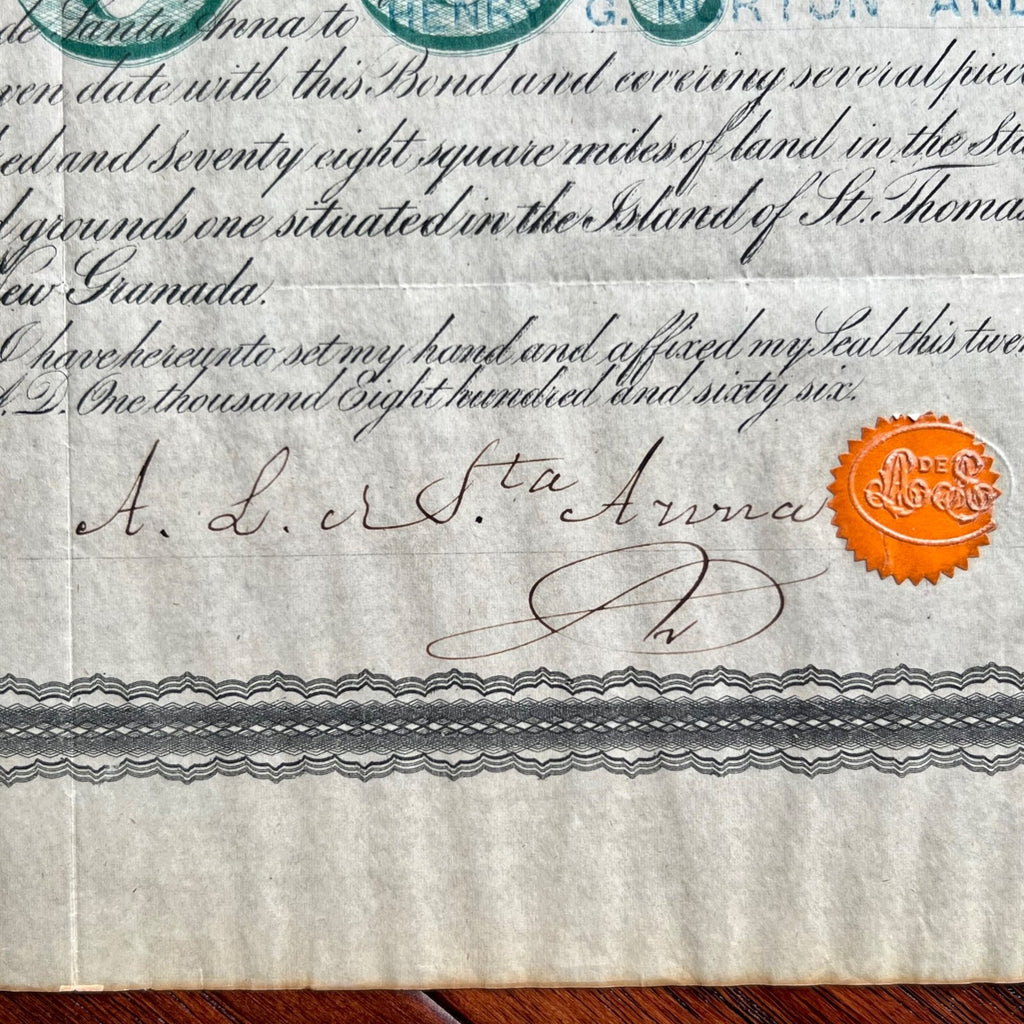 de Santa Anna to HENRY G. NORTON AND
ven date with this Bond and covering several piec
ed and seventy eight square miles of land in the Sta
d grounds one situated in the Island of St. Thomas
New Granada.
I have hereunto set my hand and affixed my Seal this twen
A. D. One thousand Eight hundred and sixty six.
A. L. de Sta Anna
A DE S